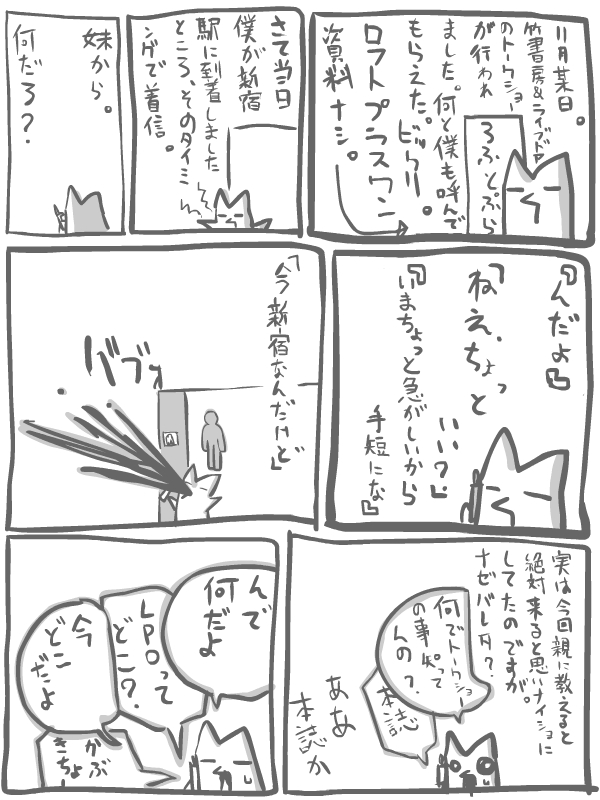 11月某日。
竹書房&ライブドア
のトークショー
が行われ
ました。何と僕も呼んで
もらえた。ビックリ。
ロフトプラスワン
資料ナシ。
ろふとぷら
さて当日
僕が新宿
駅に到着しました
ところ、そのタイミ
ングで着信。
妹から。
何だろ?
『んだよ』
「ねえ、ちょっと
いい?」
『いまちょっと急がしいから
手短にな』
「今新宿なんだけど」
バブォ
実は今回親に教えると
絶対来ると思いナイショに
してたのですが。
ナゼバレタ?
何でトークショー
の事知って
んの?
本誌
ああ
本誌か
んで
何だよ
LPOって
どこ?
今
どこ
だよ
かぶ
きちょー